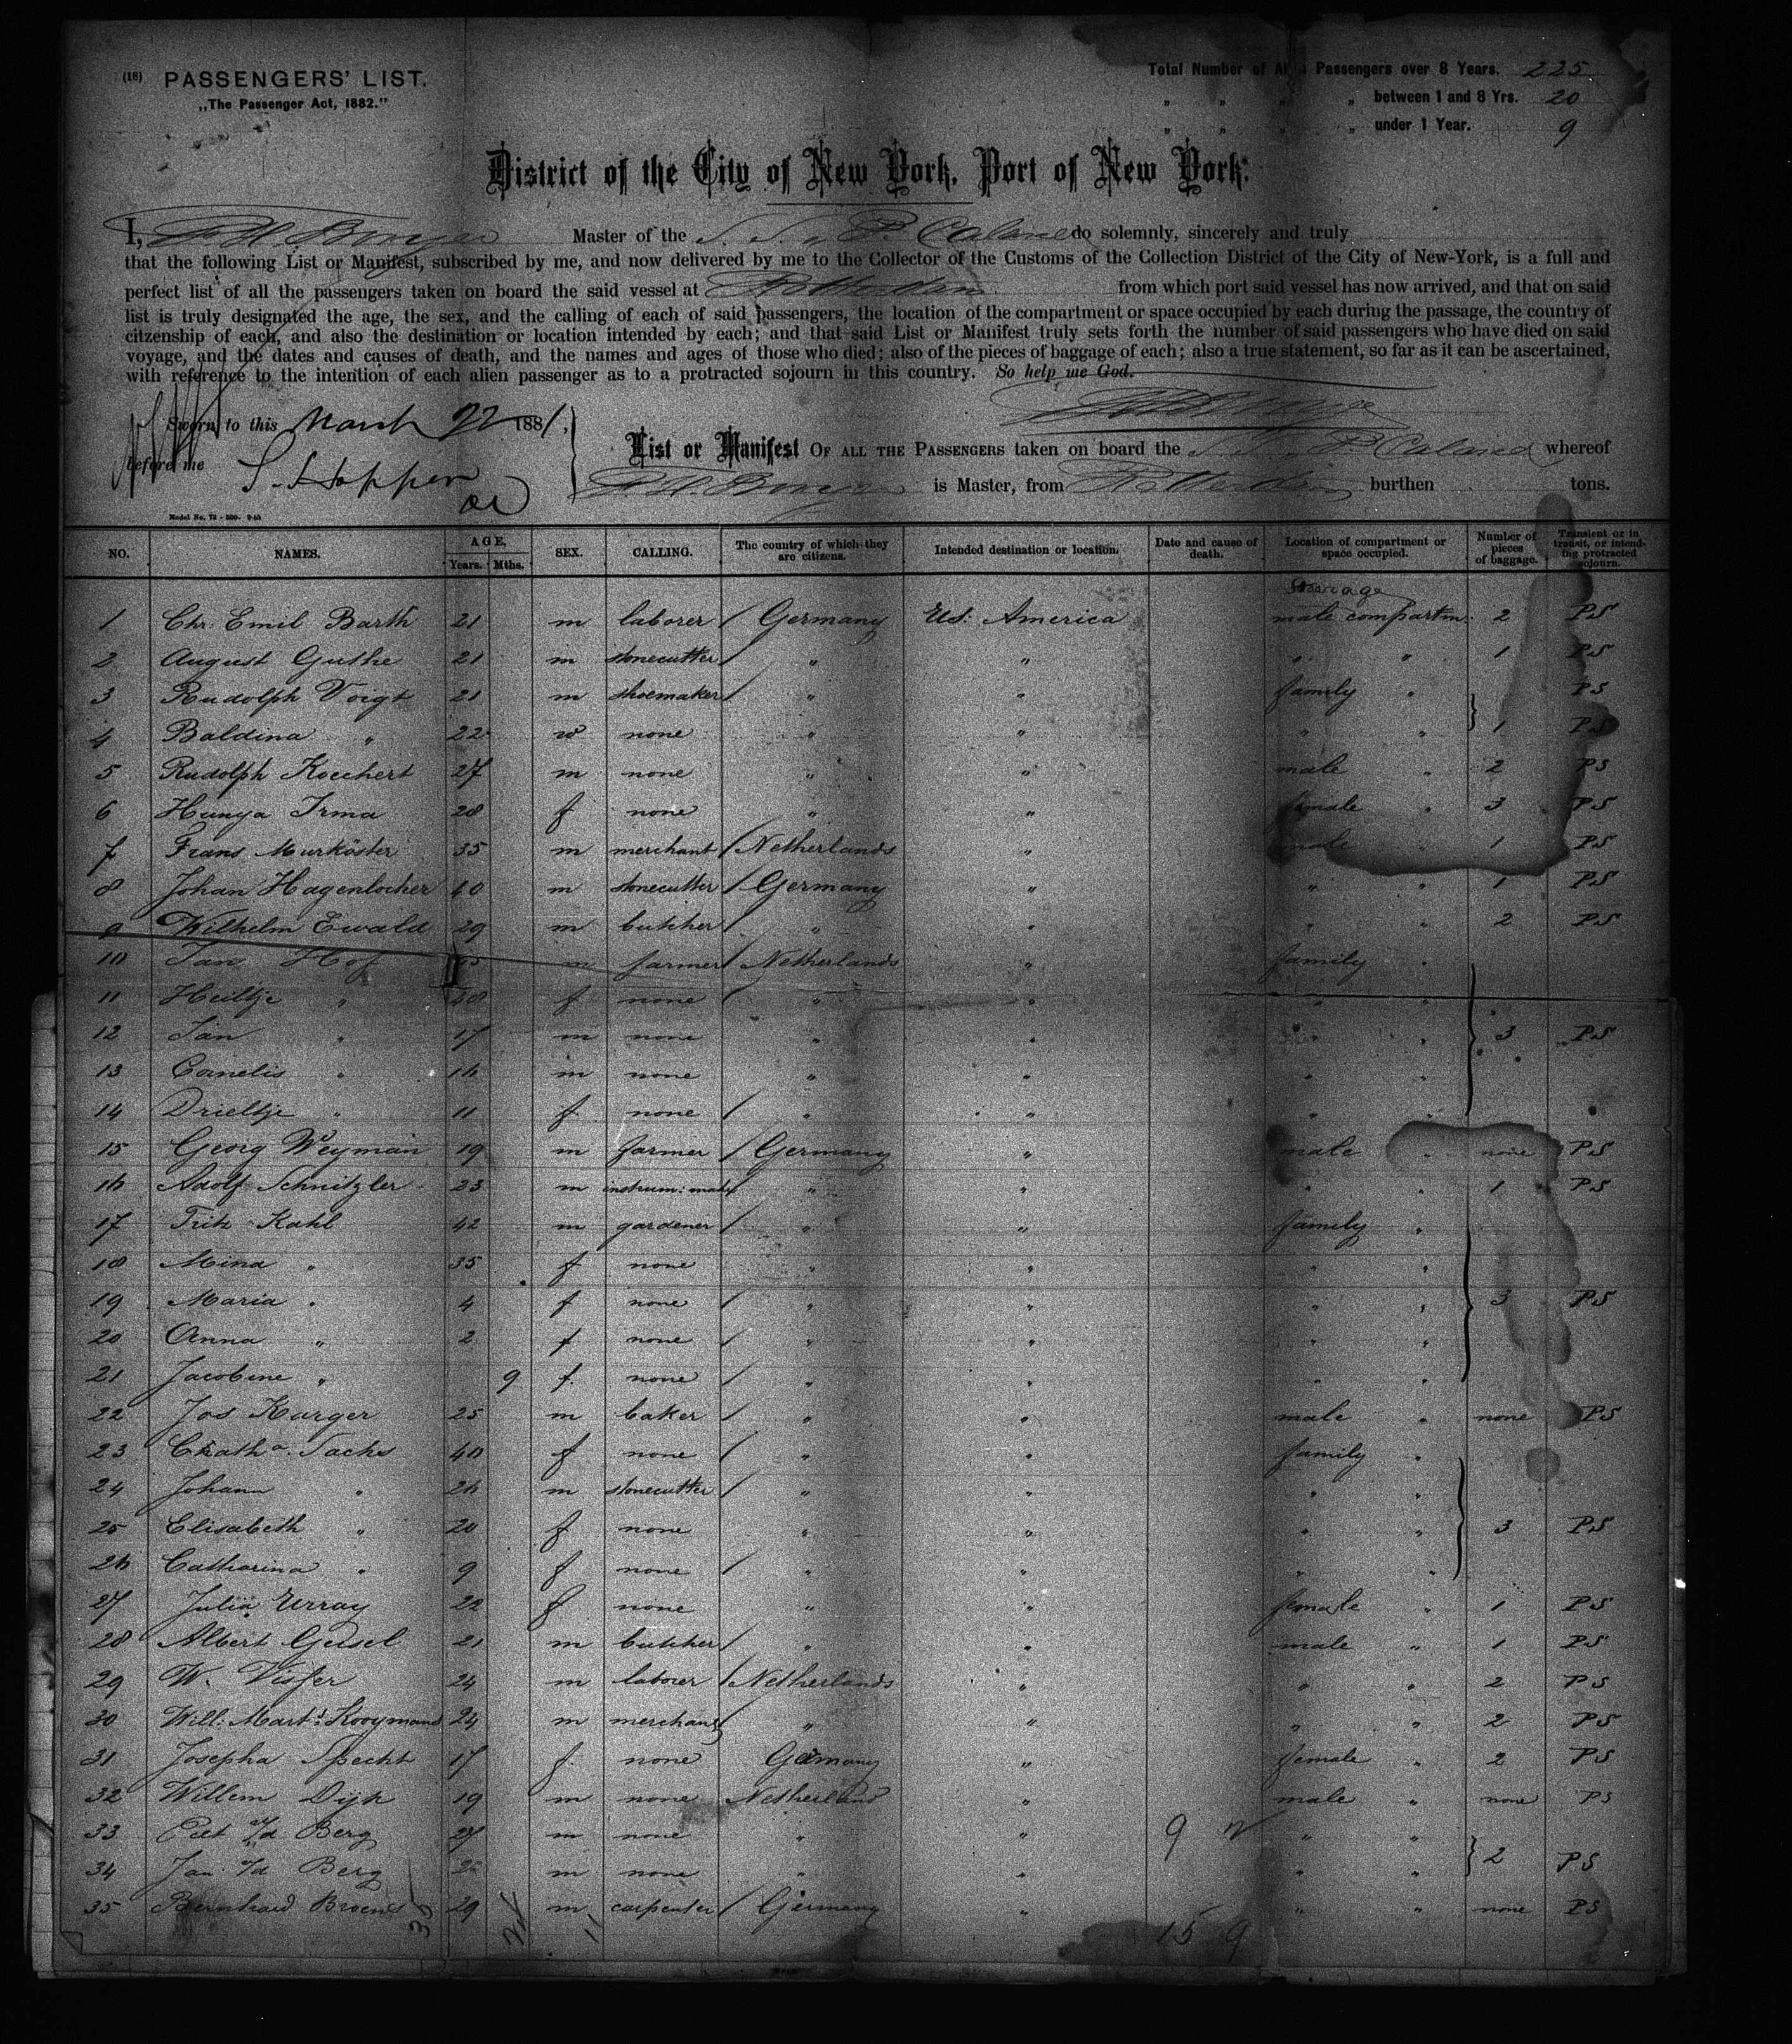 (18) PASSENGERS' LIST.
„The Passenger Act, 1882."
Total Number of Alien Passengers over 8 Years. 225
„ „ „ „ between 1 and 8 Yrs. 20
„ „ „ „ under 1 Year. 9
District of the City of New York, Port of New York:
I, Master of the S. S. P. Caland do solemnly, sincerely and truly
that the following List or Manifest, subscribed by me, and now delivered by me to the Collector of the Customs of the Collection District of the City of New-York, is a full and
perfect list of all the passengers taken on board the said vessel at Rotterdam from which port said vessel has now arrived, and that on said
list is truly designated the age, the sex, and the calling of each of said passengers, the location of the compartment or space occupied by each during the passage, the country of
citzenship of each, and also the destination or location intended by each; and that said List or Manifest truly sets forth the number of said passengers who have died on said
voyage, and the dates and causes of death, and the names and ages of those who died; also of the pieces of baggage of each; also a true statement, so far as it can be ascertained,
with reference to the intention of each alien passenger as to a protracted sojourn in this country. So help me God.
Sworn to this March 22 188
before me
List or Manifest OF ALL THE PASSENGERS taken on board the S. S. P. Caland whereof
is Master, from Rotterdam burthen tons.
NO. NAMES. AGE. Years. Mths. SEX. CALLING. The country of which they are citizens. Intended destination or location. Date and cause of death. Location of compartment or space occupied. Number of pieces of baggage. Transient or in transit, or intending protracted sojourn.
Steerage
1 Chr. Emil Barth 21 m laborer / Germany U.S. America male compartm. 2 PS
2 August Guthe 21 m stonecutter / „ „ „ „ 1 PS
3 Rudolph Voigt 21 m shoemaker / „ „ family „ PS
4 Baldina „ 22 w none „ „ „ „ 1 PS
5 Rudolph Koechert 27 m none „ „ male „ 2 PS
6 Hunya Irma 28 f none „ „ female „ 3 PS
7 Frans Murköster 35 m merchant / Netherlands „ male „ 1 PS
8 Johan Hagenlocher 40 m stonecutter / Germany „ „ „ 1 PS
9 Wilhelm Ewald 29 m butcher / „ „ „ „ 2 PS
10 Jan Hof m farmer / Netherlands „ family „
11 Heiltje „ 48 f none / „ „ „ „
12 Jan „ 17 m none „ „ „ „ 3 PS
13 Cornelis „ 16 m none „ „ „ „
14 Drieltje „ 11 f none / „ „ „ „
15 Georg Weyman 19 m farmer / Germany „ male „ none PS
16 Adolf Schnitzler 23 m instrum: maker „ „ „ „ 1 PS
17 Fritz Kahl 42 m gardener / „ „ family „
18 Mina „ 35 f none „ „ „ „
19 Maria „ 4 f none / „ „ „ „ 3 PS
20 Anna „ 2 f none / „ „ „ „
21 Jacobine „ 9 f. none / „ „ „ „
22 Jos Karger 25 m baker / „ „ male „ none PS
23 Cathª. Sachs 40 f none / „ „ family „
24 Johann „ 26 m stonecutter / „ „ „ „
25 Elisabeth „ 20 f none „ „ „ „ 3 PS
26 Catharina „ 9 f none / „ „ „ „
27 Julia Urray 22 f none „ „ female „ 1 PS
28 Albert Geisel 21 m butcher / „ „ male „ 1 PS
29 W. Visser 24 m laborer / Netherlands „ „ „ 2 PS
30 Will: Marts: Kooymans 24 m merchant / „ „ „ „ 2 PS
31 Josepha Specht 17 f. none Germany „ female „ 2 PS
32 Willem Dijk 19 m none Netherland „ male „ none PS
33 Piet v/d Berg 27 m none „ „ 9 „ „
34 Jan v/d Berg 22 m none „ „ „ „ 2 PS
35 Bernhard 29 m carpenter / Germany „ „ „ none PS
35 15 9